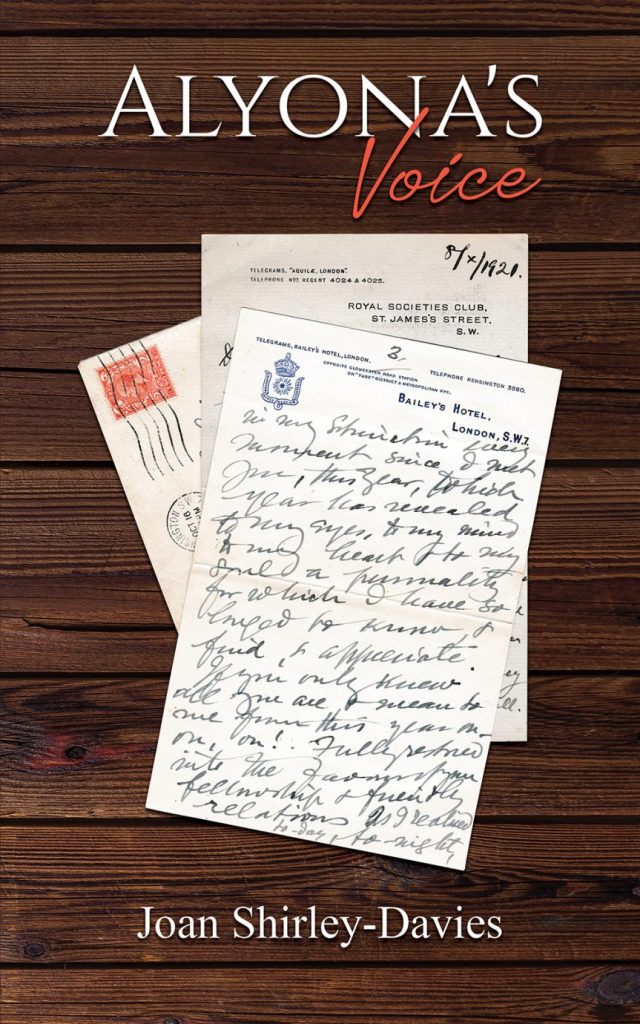 ALYONA'S
Voice
8/x/1921.
TELEGRAMS, "AQUILÆ, LONDON".
TELEPHONE NOS REGENT 4024 & 4025.
ROYAL SOCIETIES CLUB,
ST. JAMES'S STREET,
S.W.
3
TELEGRAMS, BAILEY'S HOTEL, LONDON.
TELEPHONE KENSINGTON 3560.
OPPOSITE GLOUCESTER ROAD STATION
ON "TUBE" DISTRICT & METROPOLITAN RYS.
BAILEY'S HOTEL,
LONDON, S.W.7.
in my
moment since I met
you, this year, which
year has revealed
to my eyes, to my mind
to my heart & to my
soul a personality
for which I have so
longed to know, &
find, & appreciate.
If you only knew
all you are, & mean to
me from this year on-
on, on! Fully restored
into the your
fellowship & friendly
relations as I realised
to-day, to-night,
OCT 16
Joan Shirley-Davies